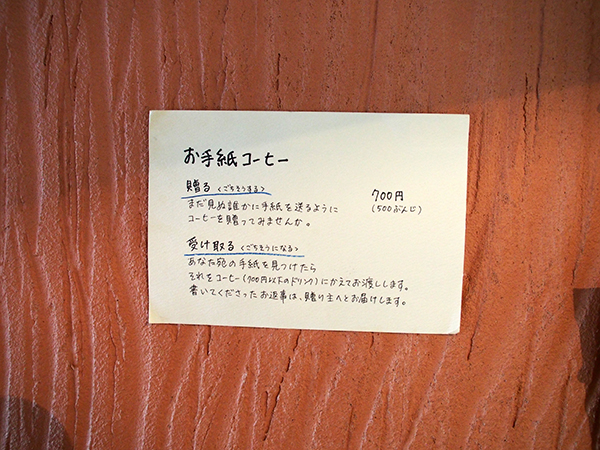 お手紙コーヒー
贈る〈ごちそうする〉
まだ見ぬ誰かに手紙を送るように
コーヒーを贈ってみませんか。
700円
(500ぶんじ)
受け取る〈ごちそうになる〉
あなた宛の手紙を見つけたら
それをコーヒー(700円以下のドリンク)にかえてお渡しします。
書いてくださったお返事は、贈り主へとお届けします。